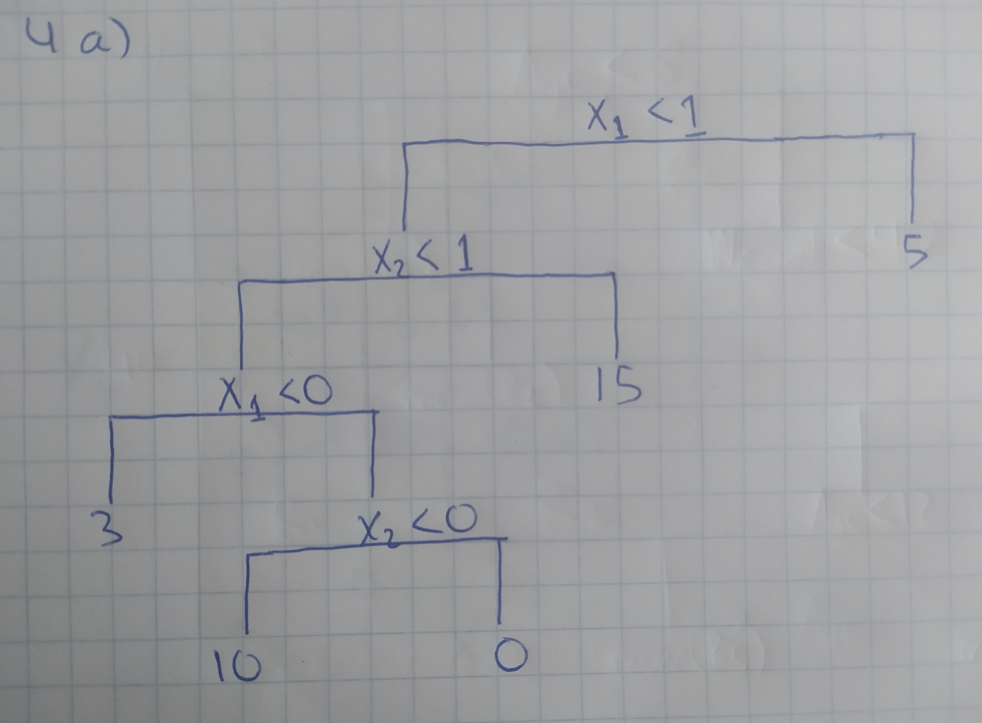 4 a)
X₁ < 1
X₂ < 1
5
X₁ < 0
15
3
X₂ < 0
10
0